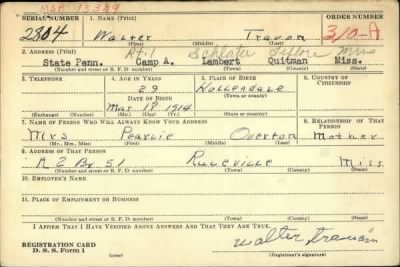 MSP 13349
SERIAL NUMBER 1. NAME (Print) ORDER NUMBER
2804 Walter Travon 310-A
(First) (Middle) (Last)
2. ADDRESS (Print) Rt-1 Schlater Leflore Miss
State Penn. Camp A. Lambert Quitman Miss.
(Number and street or R. F. D. number) (Town) (County) (State)
3. TELEPHONE 4. AGE IN YEARS 5. PLACE OF BIRTH 6. COUNTRY OF CITIZENSHIP
29 Hollendale
DATE OF BIRTH (Town or county)
Mar 18 1914
(Exchange) (Number) (Mo.) (Day) (Yr.) (State or country)
7. NAME OF PERSON WHO WILL ALWAYS KNOW YOUR ADDRESS 8. RELATIONSHIP OF THAT PERSON
Mrs Pearlie Overton Mother
(Mr., Mrs., Miss) (First) (Middle) (Last)
9. ADDRESS OF THAT PERSON
R 2 Bx 51 Ruleville Miss
(Number and street or R. F. D. number) (Town) (County) (State)
10. EMPLOYER'S NAME
11. PLACE OF EMPLOYMENT OR BUSINESS
(Number and street or R. F. D. number) (Town) (County) (State)
I AFFIRM THAT I HAVE VERIFIED ABOVE ANSWERS AND THAT THEY ARE TRUE.
REGISTRATION CARD
D. S. S. Form 1
Walter
(Registrant's signature)